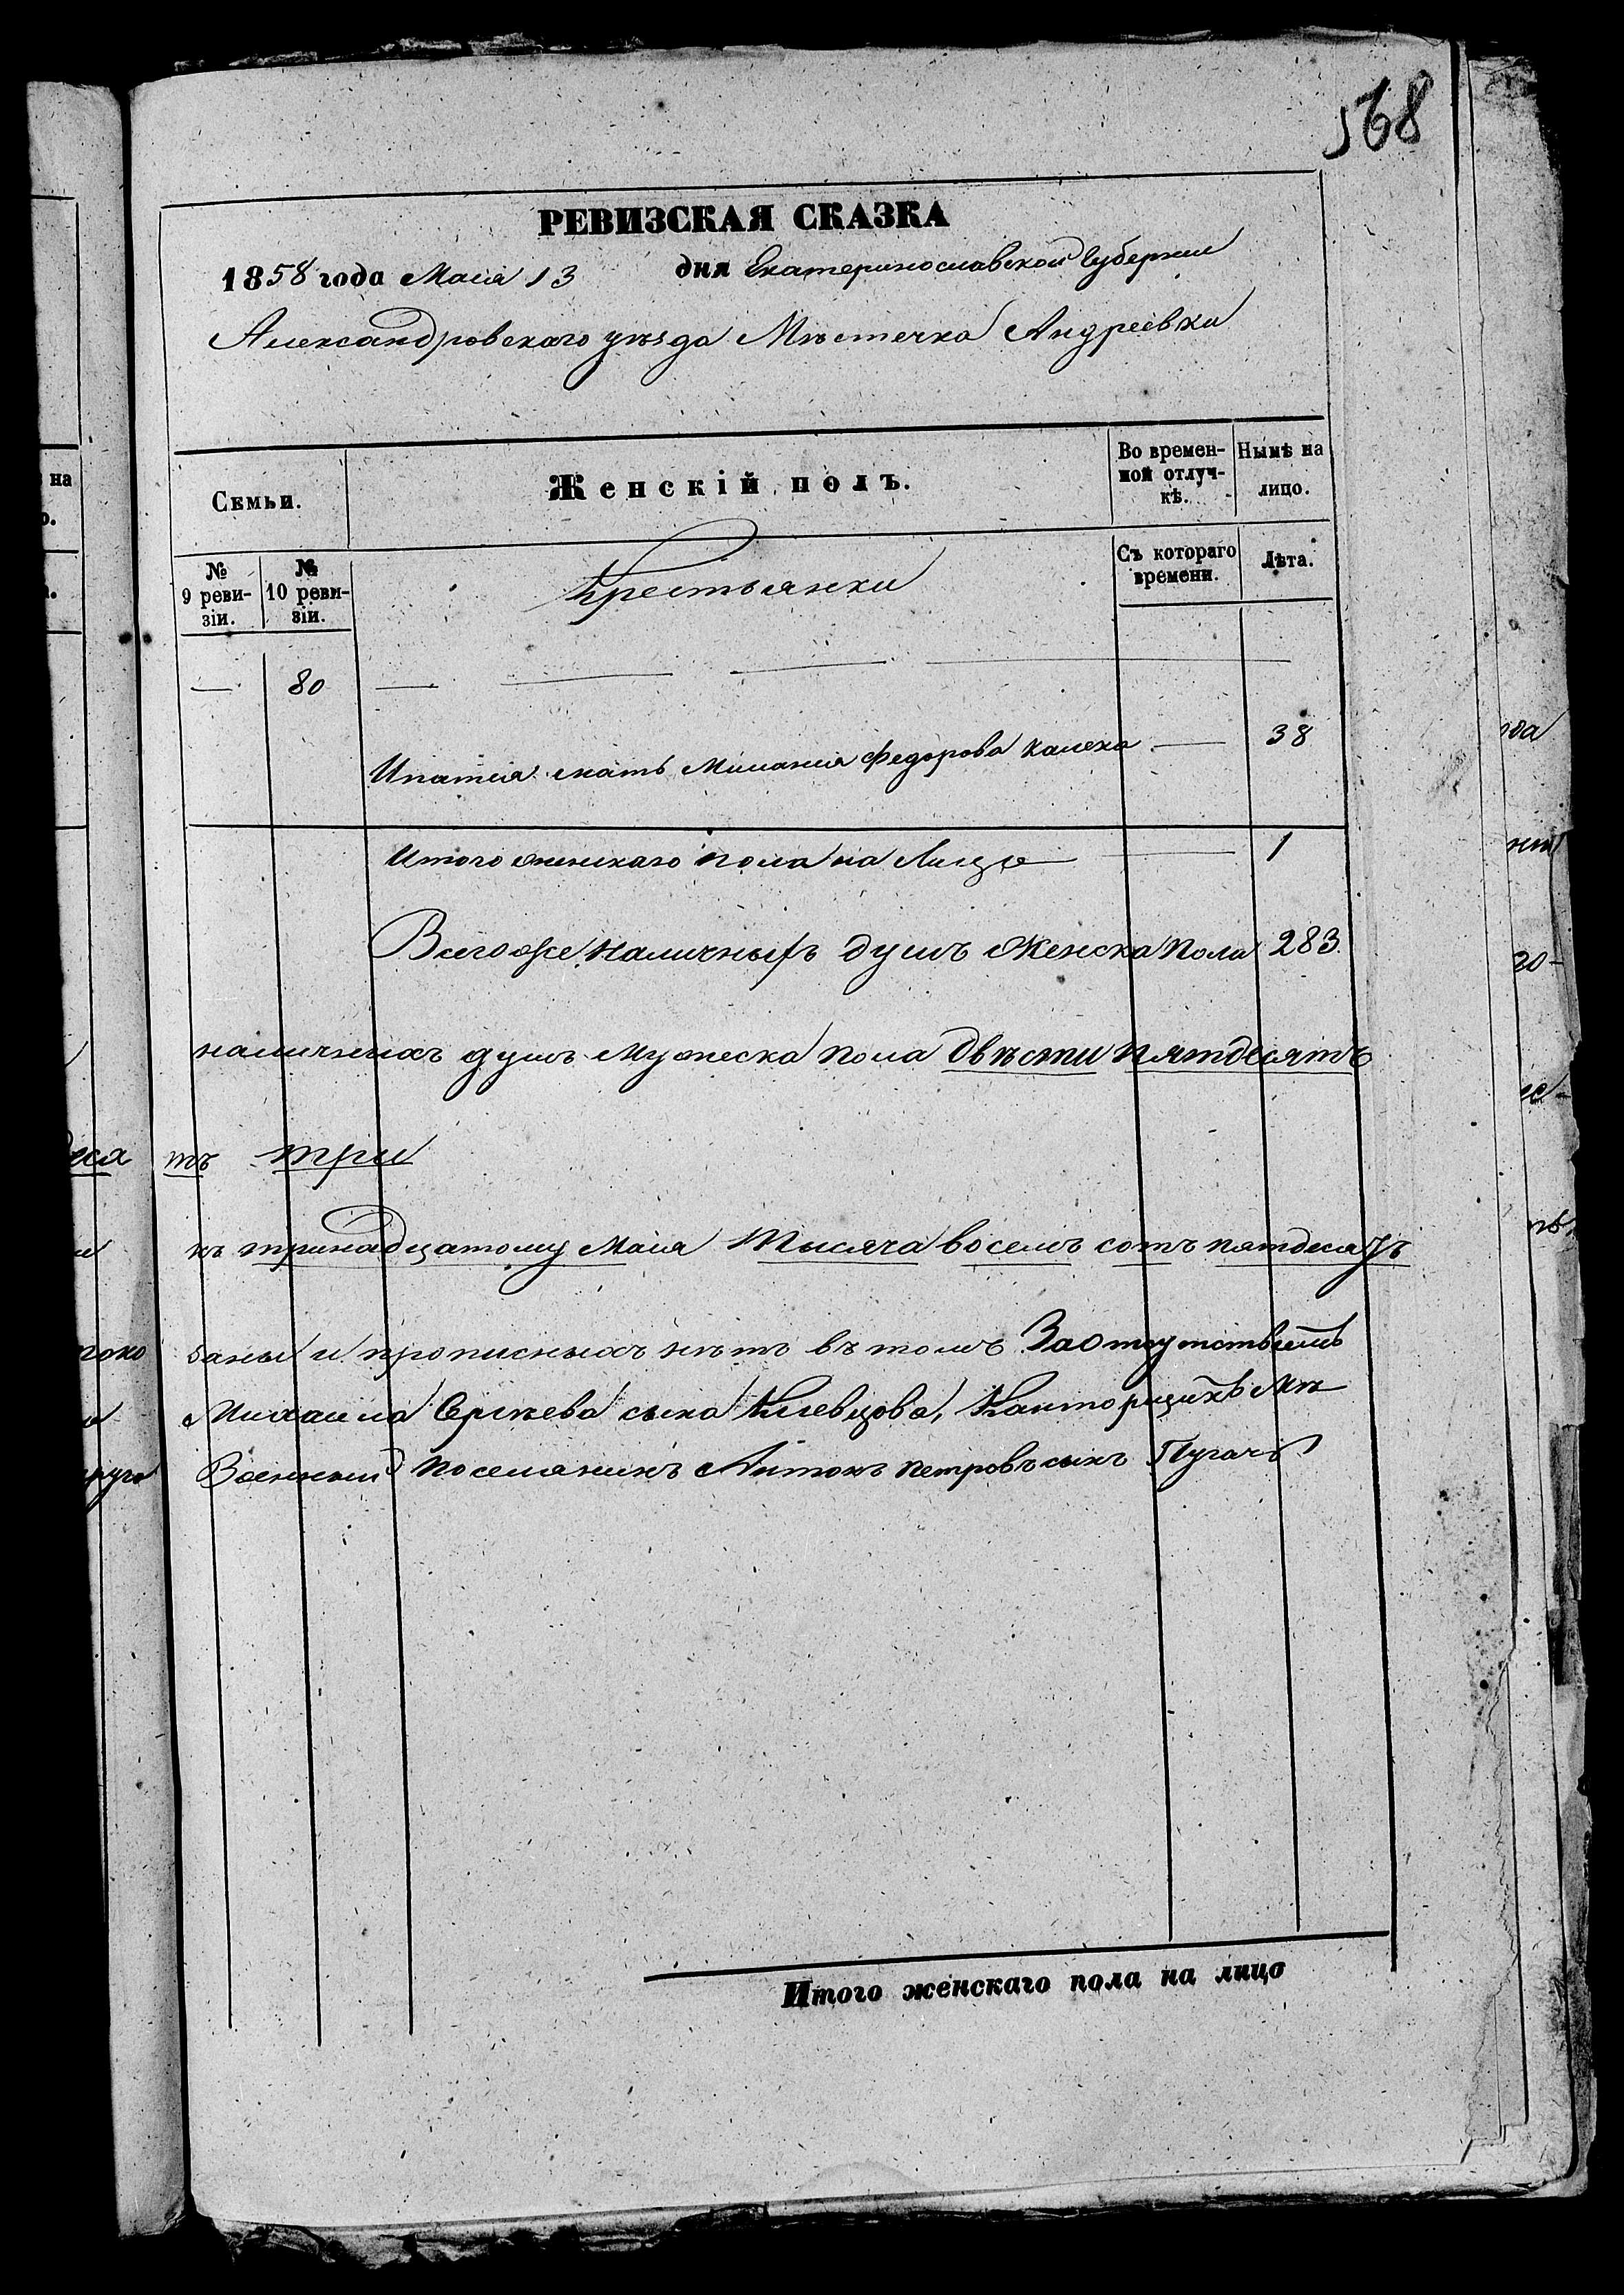 568
РЕВИЗСКАЯ СКАЗКА
1858 года Маія 13 дня Екатеринославской Губерніи
Александровскаго уѣзда Мѣстечка Андреевки
Семьи.
Женскій полъ.
Во времен-
ной отлуч-
кѣ.
Нынѣ на
лицо.
№
9 реви-
зіи.
№
10 реви-
зіи.
Крестьянки
Съ котораго
времени.
Лѣта.
— 80 —
Ипатія мать Миланія Федорова калека — 38
Итого женскаго пола на Лицо — 1
Всегоже наличныхъ душъ Женска Пола 283
наличныхъ душъ мужеска пола двѣсти пятдесятъ
тъ три
къ тринадцатому Маія тысяча восемъ сотъ пятдесятъ
ваны и прописныхъ нѣтъ въ томъ За отсутствіемъ
Михаила Сергѣева сына Клевцова,
Военный поселянинъ Антонъ Петровъ сынъ Пугачъ
Итого женскаго пола на лицо